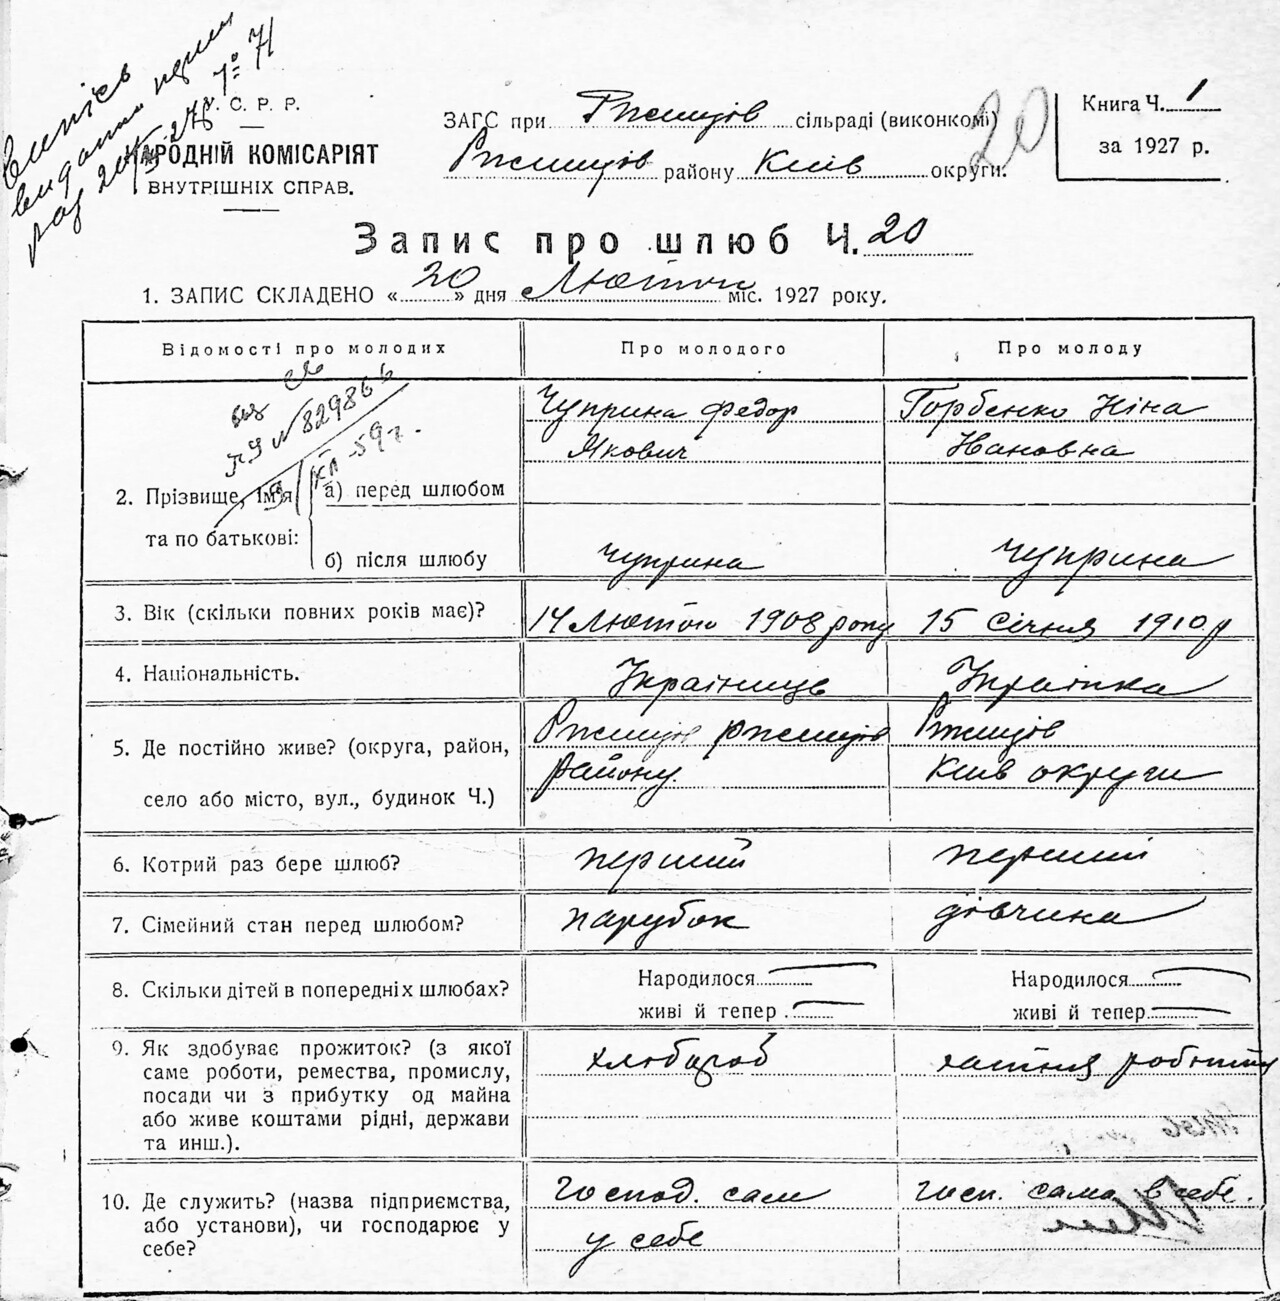 Випись
видано перши
раз 20/ІІ-27 р. № 71
У. С. Р. Р.
НАРОДНІЙ КОМІСАРІЯТ
ВНУТРІШНІХ СПРАВ.
ЗАГС при Ржищів сільраді (виконкомі)
Ржищів району Київ округи.
20
Книга Ч. 1
за 1927 р.
Запис про шлюб Ч. 20
1. ЗАПИС СКЛАДЕНО « 20 » дня Лютого міс. 1927 року.
Відомості про молодих
Про молодого
Про молоду
№ 829866
XII-59 г.
2. Прізвище, ім'я та по батькові:
а) перед шлюбом
Чуприна Федор
Якович
Горбенко Ніна
Ивановна
б) після шлюбу
Чуприна
Чуприна
3. Вік (скільки повних років має)?
14 Лютого 1908 року
15 Січня 1910 р
4. Національність.
Українець
Українка
5. Де постійно живе? (округа, район,
село або місто, вул., будинок Ч.)
Ржищів ржищів
району.
Ржищів
Київ округи
6. Котрий раз бере шлюб?
перший
перший
7. Сімейний стан перед шлюбом?
парубок
дівчина
8. Скільки дітей в попередніх шлюбах?
Народилося
живі й тепер
Народилося
живі й тепер
9. Як здобуває прожиток? (з якої
саме роботи, ремества, промислу,
посади чи з прибутку од майна
або живе коштами рідні, держави
та инш.).
хлібороб
хатня робітниця
10. Де служить? (назва підприємства,
або установи), чи господарює у
себе?
господ. сам
у себе
госп. сама в себе.